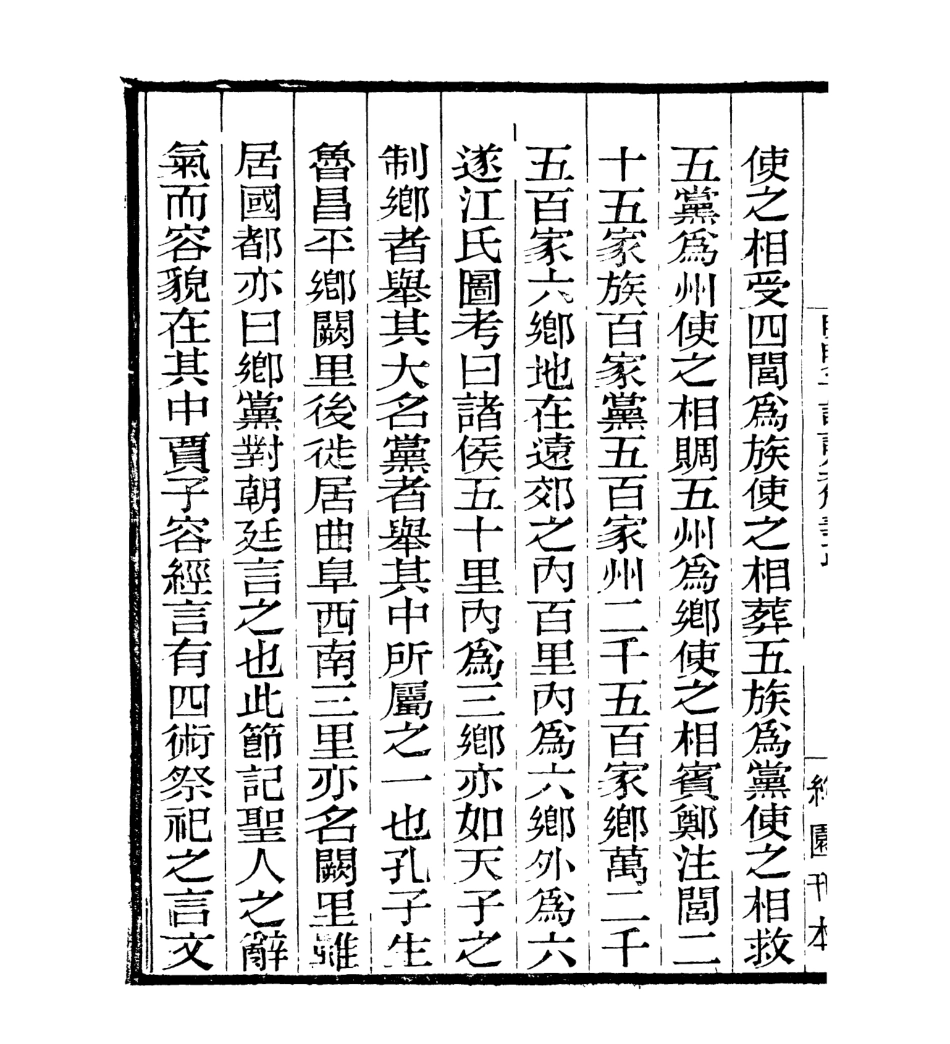 使之相受四閭爲族使之相葬五族爲黨使之相救
五黨爲州使之相賙五州爲鄉使之相賓鄭注閭二
十五家族百家黨五百家州二千五百家鄉萬二千
五百家六鄉地在遠郊之內百里內爲六鄉外爲六
遂江氏圖考曰諸侯五十里內爲三鄉亦如天子之
制鄉者舉其大名黨者舉其中所屬之一也孔子生
魯昌平鄉闕里後徙居曲阜西南三里亦名闕里雖
居國都亦曰鄉黨對朝廷言之也此節記聖人之辭
氣而容貌在其中賈子容經言有四術祭祀之言文
園刊本